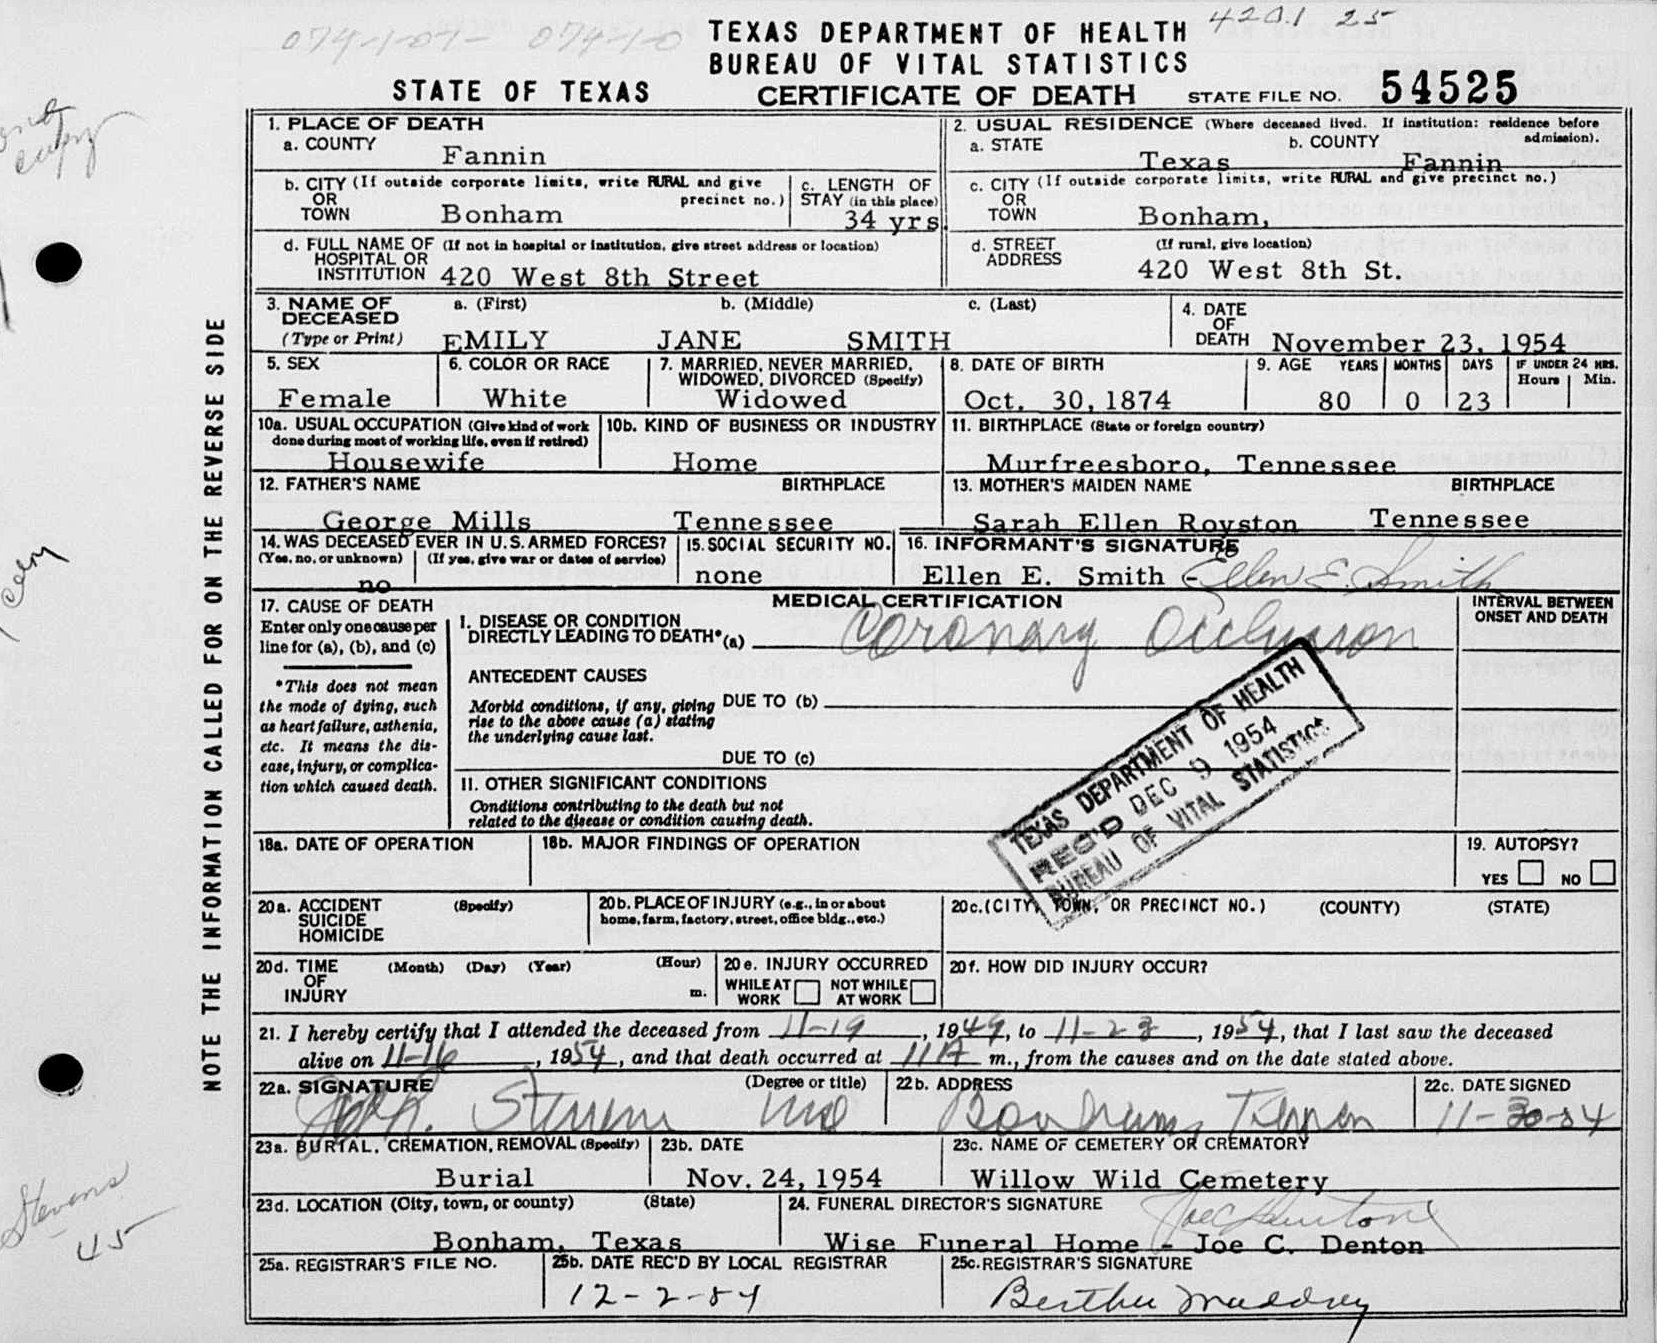 4201 25
TEXAS DEPARTMENT OF HEALTH
BUREAU OF VITAL STATISTICS
STATE OF TEXAS CERTIFICATE OF DEATH STATE FILE NO. 54525
NOTE THE INFORMATION CALLED FOR ON THE REVERSE SIDE
1. PLACE OF DEATH
a. COUNTY Fannin
2. USUAL RESIDENCE (Where deceased lived. If institution: residence before admission).
a. STATE Texas b. COUNTY Fannin
b. CITY (If outside corporate limits, write RURAL and give precinct no.) OR TOWN Bonham
c. LENGTH OF STAY (in this place) 34 yrs
c. CITY (If outside corporate limits, write RURAL and give precinct no.) OR TOWN Bonham,
d. FULL NAME OF (If not in hospital or institution, give street address or location) HOSPITAL OR INSTITUTION 420 West 8th Street
d. STREET ADDRESS (If rural, give location) 420 West 8th St.
3. NAME OF DECEASED (Type or Print) a. (First) b. (Middle) c. (Last)
EMILY JANE SMITH
4. DATE OF DEATH November 23, 1954
5. SEX Female
6. COLOR OR RACE White
7. MARRIED, NEVER MARRIED, WIDOWED, DIVORCED (Specify) Widowed
8. DATE OF BIRTH Oct. 30, 1874
9. AGE YEARS 80 MONTHS 0 DAYS 23 IF UNDER 24 HRS. Hours Min.
10a. USUAL OCCUPATION (Give kind of work done during most of working life, even if retired) Housewife
10b. KIND OF BUSINESS OR INDUSTRY Home
11. BIRTHPLACE (State or foreign country) Murfreesboro, Tennessee
12. FATHER'S NAME BIRTHPLACE
George Mills Tennessee
13. MOTHER'S MAIDEN NAME BIRTHPLACE
Sarah Ellen Royston Tennessee
14. WAS DECEASED EVER IN U.S. ARMED FORCES?
(Yes, no, or unknown) (If yes, give war or dates of service)
no
15. SOCIAL SECURITY NO. none
16. INFORMANT'S SIGNATURE
Ellen E. Smith - Ellen E. Smith
17. CAUSE OF DEATH
Enter only one cause per line for (a), (b), and (c)
*This does not mean the mode of dying, such as heart failure, asthenia, etc. It means the disease, injury, or complication which caused death.
MEDICAL CERTIFICATION
INTERVAL BETWEEN ONSET AND DEATH
I. DISEASE OR CONDITION DIRECTLY LEADING TO DEATH* (a) Coronary Occlusion
ANTECEDENT CAUSES
Morbid conditions, if any, giving rise to the above cause (a) stating the underlying cause last.
DUE TO (b)
DUE TO (c)
II. OTHER SIGNIFICANT CONDITIONS
Conditions contributing to the death but not related to the disease or condition causing death.
TEXAS DEPARTMENT OF HEALTH
REC'D DEC 9 1954
BUREAU OF VITAL STATISTICS
18a. DATE OF OPERATION
18b. MAJOR FINDINGS OF OPERATION
19. AUTOPSY?
YES NO
20a. ACCIDENT SUICIDE HOMICIDE (Specify)
20b. PLACE OF INJURY (e.g., in or about home, farm, factory, street, office bldg., etc.)
20c. (CITY, TOWN, OR PRECINCT NO.) (COUNTY) (STATE)
20d. TIME OF INJURY (Month) (Day) (Year) (Hour) m.
20e. INJURY OCCURRED
WHILE AT WORK NOT WHILE AT WORK
20f. HOW DID INJURY OCCUR?
21. I hereby certify that I attended the deceased from 11-19, 1949, to 11-23, 1954, that I last saw the deceased
alive on 11-16, 1954, and that death occurred at 11A m., from the causes and on the date stated above.
22a. SIGNATURE (Degree or title)
Stevens MD
22b. ADDRESS Bonham, Texas
22c. DATE SIGNED 11-30-54
23a. BURIAL, CREMATION, REMOVAL (Specify) Burial
23b. DATE Nov. 24, 1954
23c. NAME OF CEMETERY OR CREMATORY Willow Wild Cemetery
23d. LOCATION (City, town, or county) (State)
Bonham, Texas
24. FUNERAL DIRECTOR'S SIGNATURE Joe C Denton
Wise Funeral Home - Joe C. Denton
25a. REGISTRAR'S FILE NO.
25b. DATE REC'D BY LOCAL REGISTRAR 12-2-54
25c. REGISTRAR'S SIGNATURE Bertha Maddrey
Stevens
45